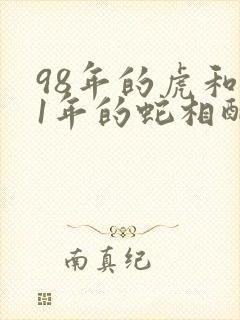 98年的虎和
1年的蛇相配
南真纪